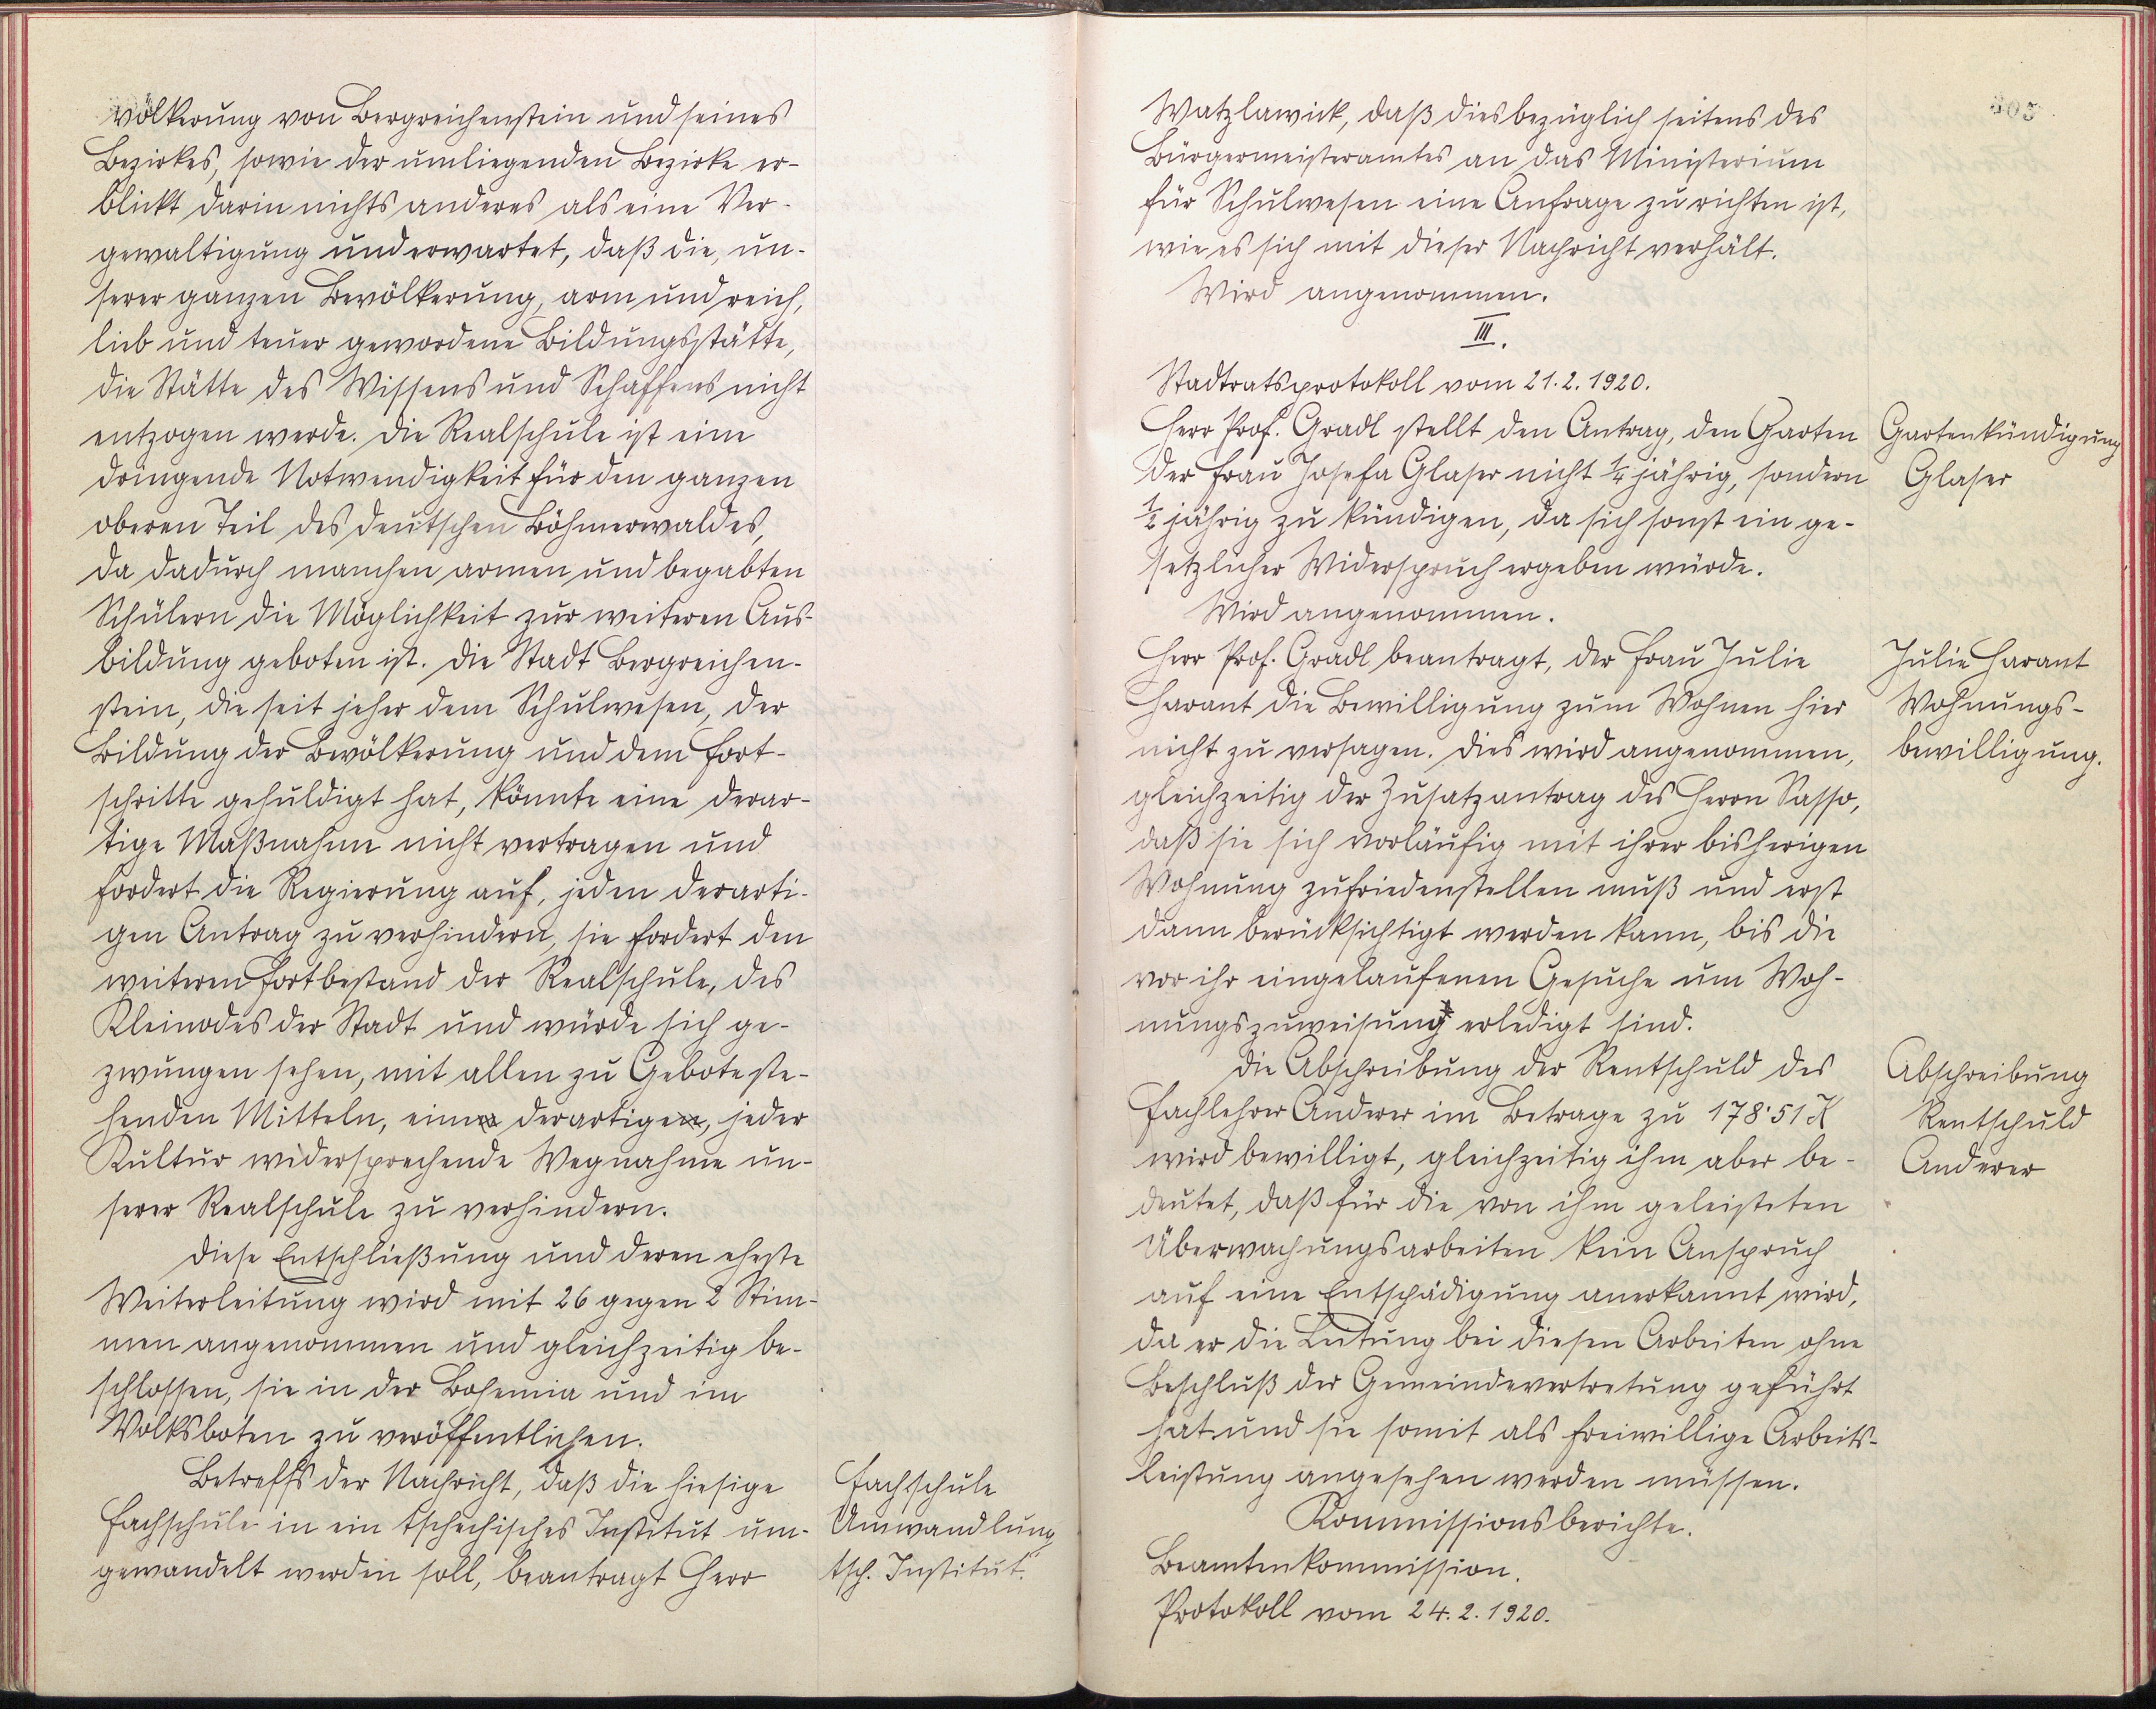 völkerung von Bergreichenstein und seines
Bezirkes, sowie der umliegenden Bezirke er-
blickt darin nichts anderes als eine Ver-
gewaltigung und erwartet, daß die, un-
serer ganzen Bevölkerung, arm und reich,
lieb und teuer gewordene Bildungsstätte,
die Stätte des Wissens und Schaffens nicht
entzogen werde. Die Realschule ist eine
dringende Notwendigkeit für den ganzen
oberen Teil des deutschen Böhmerwaldes,
da dadurch manchen armen und begabten
Schülern die Möglichkeit zur weiteren Aus-
bildung geboten ist. Die Stadt Bergreichen-
stein, die seit jeher dem Schulwesen, der
Bildung der Bevölkerung und dem Fort-
schritte gehuldigt hat, könnte eine derar-
tige Maßnahme nicht vertragen und
fordert die Regierung auf, jeden derarti-
gen Antrag zu verhindern, sie fordert den
weiteren Fortbestand der Realschule, des
Kleinodes der Stadt und würde sich ge-
zwungen sehen, mit allen zu Gebote ste-
henden Mitteln, eine derartige, jeder
Kultur widersprechende Wegnahme un-
serer Realschule zu verhindern.
Diese Entschließung und deren eheste
Weiterleitung wird mit 26 gegen 2 Stim-
men angenommen und gleichzeitig be-
schlossen, sie in der Bohemia und im
Volksboten zu veröffentlichen.
Betreffs der Nachricht, daß die hiesige
Fachschule in ein tschechisches Institut um-
gewandelt werden soll, beantragt Herr
Fachschule
Umwandlung
tsch. Institut.
305
Watzlawick, daß diesbezüglich seitens des
Bürgermeisteramtes an das Ministerium
für Schulwesen eine Anfrage zu richten ist,
wie es sich mit dieser Nachricht verhält.
Wird angenommen.
III.
Stadtratsprotokoll vom 21.2.1920.
Herr Prof. Gradl stellt den Antrag, den Garten
der Frau Josefa Glaser nicht 1/4 jährig, sondern
1/2 jährig zu kündigen, da sich sonst ein ge-
setzlicher Widerspruch ergeben würde.
Wird angenommen.
Gartenkündigung
Glaser
Herr Prof. Gradl beantragt, der Frau Julie
Harant die Bewilligung zum Wohnen hier
nicht zu versagen. Dies wird angenommen,
gleichzeitig der Zusatzantrag des Herrn Sasso,
daß sie sich vorläufig mit ihrer bisherigen
Wohnung zufriedenstellen muß und erst
dann berücksichtigt werden kann, bis die
vor ihr eingelaufenen Gesuche um Woh-
nungszuweisung erledigt sind.
Julie Harant
Wohnungs-
bewilligung.
Die Abschreibung der Rentschuld des
Fachlehrer Anderer im Betrage zu 178·51 K
wird bewilligt, gleichzeitig ihm aber be-
deutet, daß für die von ihm geleisteten
Überwachungsarbeiten kein Anspruch
auf eine Entschädigung anerkannt wird,
da er die Leitung bei diesen Arbeiten ohne
Beschluß der Gemeindevertretung geführt
hat und sie somit als freiwillige Arbeits-
leistung angesehen werden müssen.
Abschreibung
Rentschuld
Anderer
Kommissionsberichte.
Beamtenkommission.
Protokoll vom 24.2.1920.